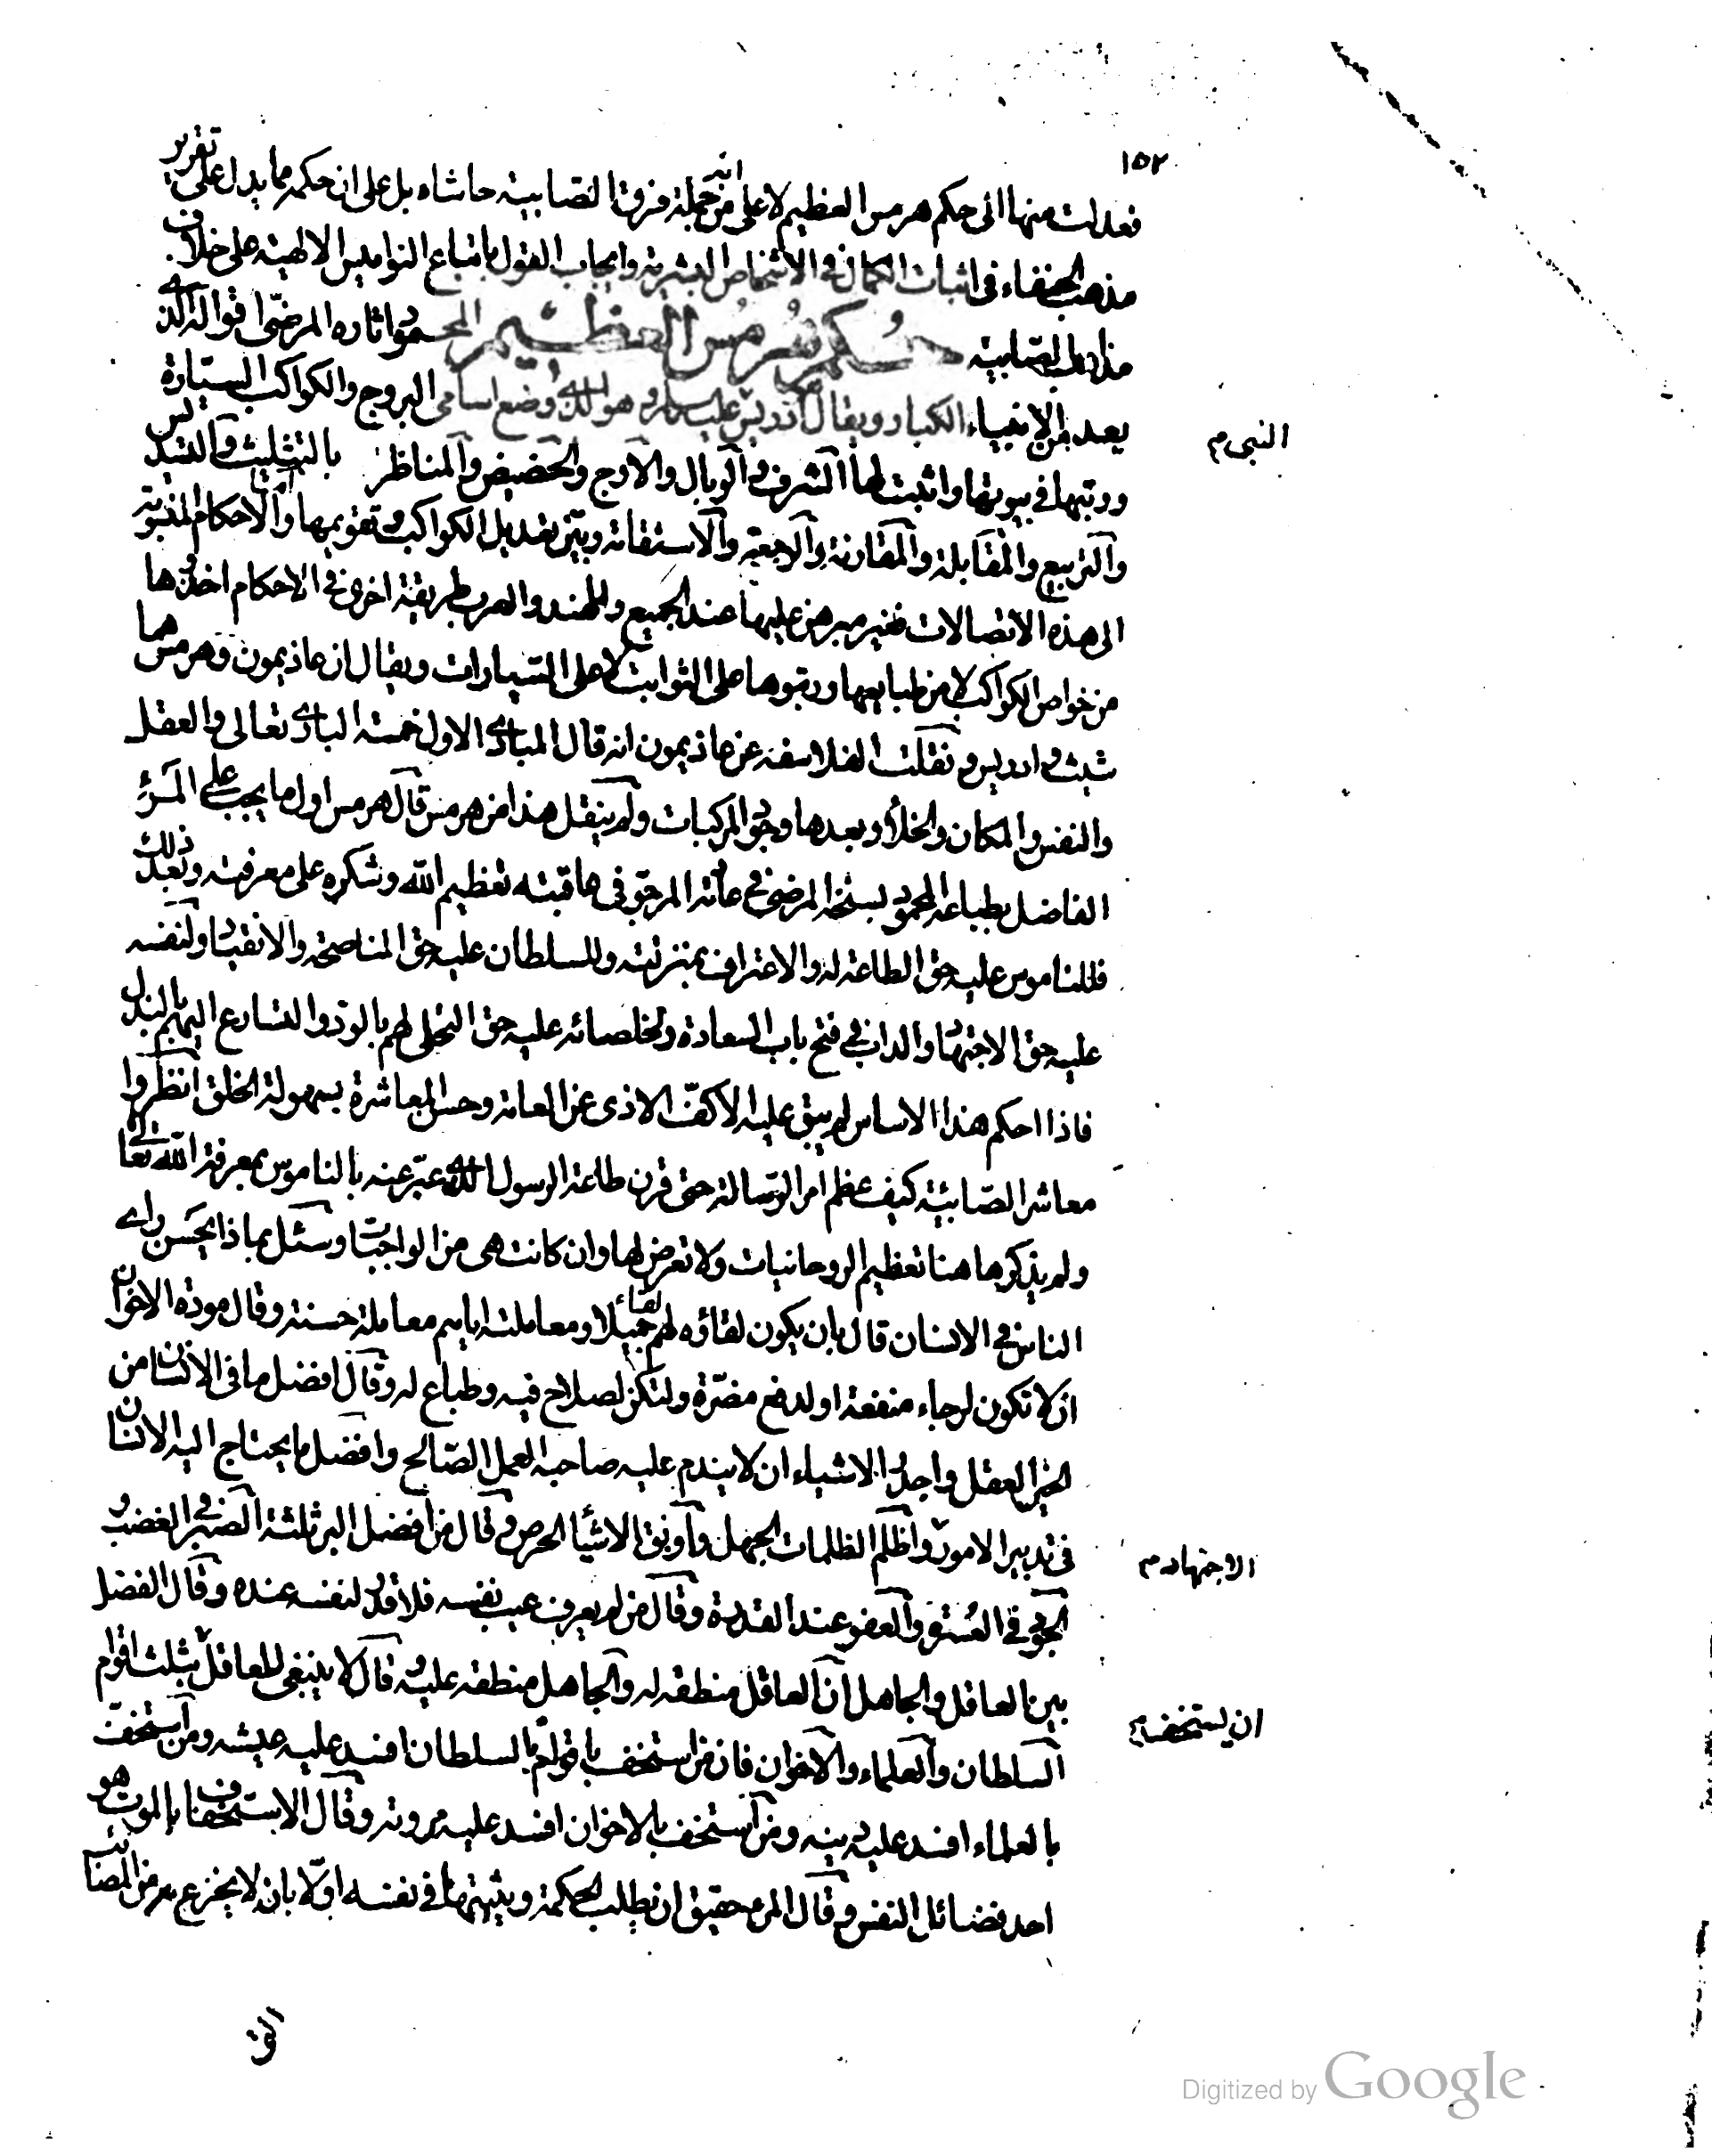 ١٥٢
فعدلت منها الى حكم هرمس العظيم لا على انه من جملة فرق الصابية حاشاه بل على ان حكمه مما يدل على تقرير
مذهب الحنفاء فى اثبات الكمال فى الاشخاص البشرية وايجاب القول باتباع النواميس الالهية على خلاف
مذاهب الصابية حكم هرمس العظيم المحمود اثاره المرضى اقواله الذى
يعد من الانبياء الكبار ويقال هو ادريس عليه السلام وهو الذى وضع اسامى البروج والكواكب السيارة
النبى م
ورتبها فى بيوتها واثبت لها الشرف والوبال والاوج والحضيض والمناظر بالتثليث والتسديس
والتربيع والمقابلة والمقارنة والرجعة والاستقامة وبين تعديل الكواكب وتقويمها واما الاحكام المنسوبة
الى هذه الاتصالات فغير مبرهن عليها عند الجميع وللهند والعرب طريقة اخرى فى الاحكام اخذوها
من خواص الكواكب لا من طبايعها ورتبوها على الثوابت لا على السيارات ويقال ان عاذيمون وهرمس هما
شيث وادريس ونقلت الفلاسفة عن عاذيمون انه قال المبادى الاول خمسة البارى تعالى والعقل
والنفس والمكان والخلأ وبعدها وجود المركبات ولم ينقل هذا من هرمس قال هرمس اول ما يجب على المرء
الفاضل بطباعه المحمود بسنخه المرضى فى عادته المرجو فى عاقبته تعظيم الله وشكره على معرفته وبعد ذلك
فللناموس عليه حق الطاعة له والاعتراف بمنزلته وللسلطان عليه حق المناصحة والانقياد ولنفسه
عليه حق الاجتهاد والداب فى فتح باب السعادة ولخلصائه عليه حق التحلى لهم بالود والتسارع اليهم بالبذل
فاذا احكم هذا الاساس لم يبق عليه الا كف الاذى عن العامة وحسن المعاشرة بسهولة الخلق انظروا
معاشر الصابئة كيف عظم امر الرسالة حتى قرن طاعة الرسول الذى عبر عنه بالناموس بمعرفة الله تعالى
ولم يذكر هاهنا تعظيم الروحانيات ولا تعرض لها وان كانت هى من الواجبات وسئل بماذا يحسن راى
الناس فى الانسان قال بان يكون لقاؤه لهم لقاء جميلا ومعاملته اياهم معاملة حسنة وقال مودة الاخوان
ان لا تكون لرجاء منفعة او لدفع مضرة ولتكن لصلاح فيه وطباع له وقال افضل ما فى الانسان من
الخير العقل واجدر الاشياء ان لا يندم عليه صاحبه العمل الصالح وافضل ما يحتاج اليه الانسان
فى تدبير الامور واظلم الظلمات الجهل واوبق الاشياء الحرص وقال من افضل البر ثلثة الصدق فى الغضب
الاجتهاد م
والجود فى العسرة والعفو عند القدرة وقال من لم يعرف عيب نفسه فلا قدر لنفسه عنده وقال الفضل
بين العاقل والجاهل ان العاقل منطقه له والجاهل منطقه عليه وقال لا ينبغى للعاقل بثلث اقوام
ان يستخف م
السلطان والعلماء والاخوان فان من استخف بالسلطان افسد عليه عيشه ومن استخف
بالعلماء افسد عليه دينه ومن استخف بالاخوان افسد عليه مروته وقال الاستخفاف بالموت هو
احد فضائل النفس وقال المرء حقيق ان يطلب الحكمة ويثبتها فى نفسه اولا بان لا يجزع من المصائب
التى
Digitized by Google